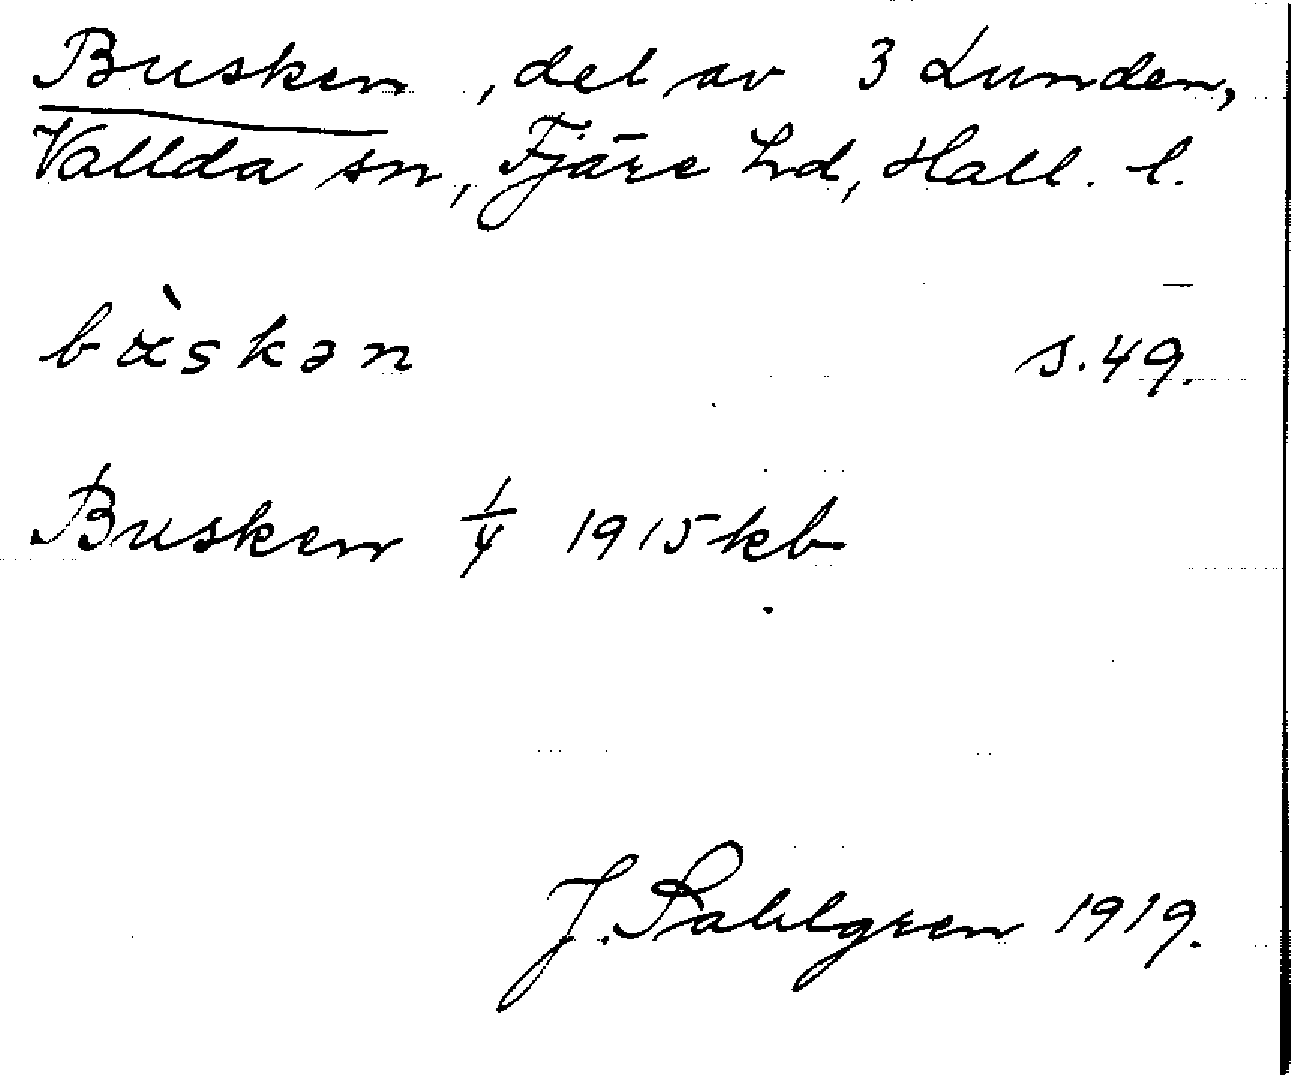 Busken, del av 3 Lunden,
Vallda sn, Fjäre hd, Hall. l.
bàskən s.49.
Busken 1/4 1915 kb
J. Sahlgren 1919.